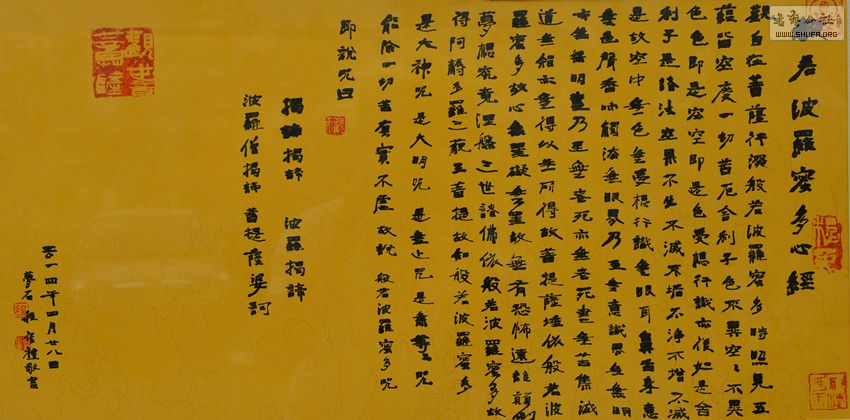 書法公社
WWW.SHUFA.ORG
若波羅蜜多心經
觀自在菩薩行深般若波羅蜜多時照見五
蘊皆空度一切苦厄舍利子色不異空空不異
色色即是空空即是色受想行識亦復如是舍
利子是諸法空相不生不滅不垢不淨不增不減
是故空中無色無受想行識無眼耳鼻舌身意
無色聲香味觸法無眼界乃至無意識界無無明
亦無無明盡乃至無老死亦無老死盡無苦集滅
道無智亦無得以無所得故菩提薩埵依般若波
羅蜜多故心無罣礙無罣故無有恐怖遠離顛倒
夢想究竟涅槃三世諸佛依般若波羅蜜多故
得阿耨多羅三藐三菩提故知般若波羅蜜多
是大神咒是大明咒是無上咒是無等等咒
能除一切苦真實不虛故說般若波羅蜜多咒
即說咒曰
揭諦揭諦 波羅揭諦
波羅僧揭諦菩提薩婆訶
二〇一四年四月廿八日
夢石 禮敬書